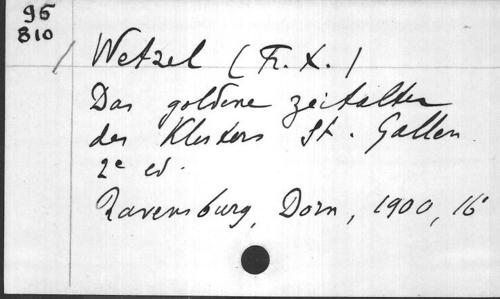 95
810
Wetzel (Fr. X.)
Das goldene Zeitalter
des Klosters St. Gallen.
2e ed.
Ravensburg, Dorn, 1900, 16°